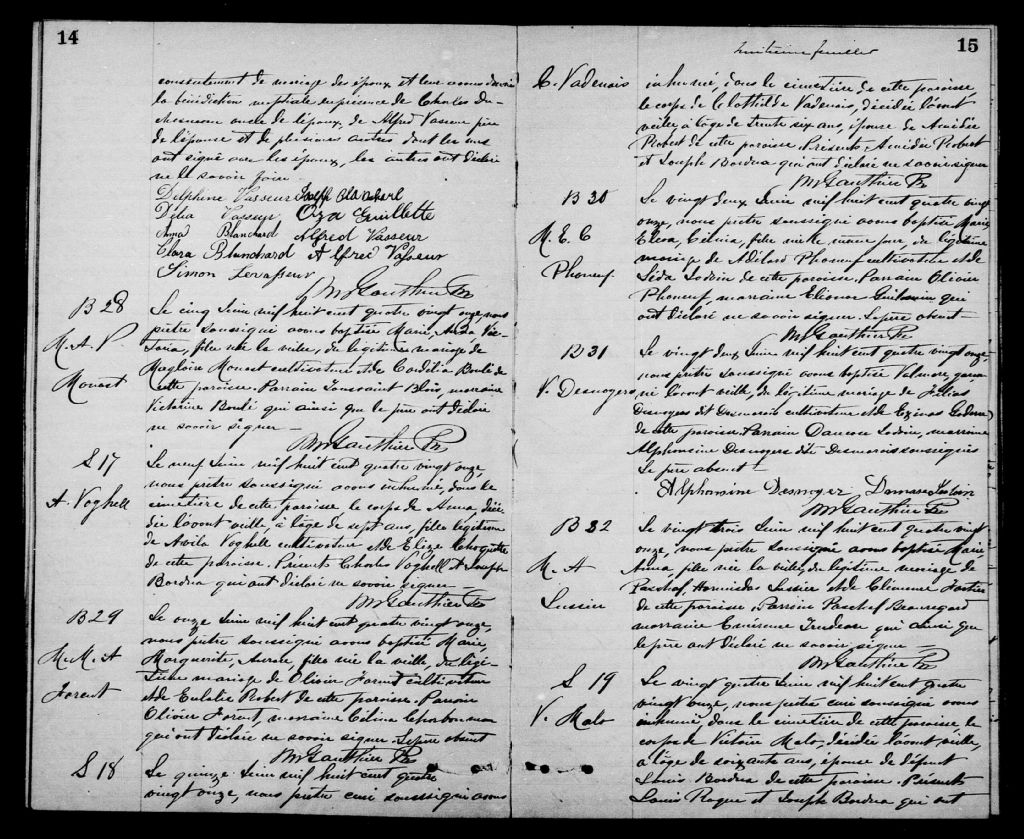 14
consentement de mariage des époux et leur avons donné
la bénédiction nuptiale en présence de Charles Du-
chesneau oncle de l'époux, de Alfred Vasseur père
de l'épouse et de plusieurs autres dont les uns
ont signé avec les époux, les autres ont déclaré
ne le savoir faire.
Delphine Vasseur Joseph Blanchard
Délia Vasseur Oza Guillette
Anna Blanchard Alfred Vasseur
Clara Blanchard Alfred Vasseur
Simon Levasseur
M Gauthier Ptr
B 28
M. A. V
Monast
Le cinq Juin mil huit cent quatre vingt onze, nous
prêtre soussigné avons baptisé Marie, Anna, Vic-
toria, fille née la veille, du légitime mariage de
Magloire Monast cultivateur et de Cordélia Boulé de
cette paroisse. Parrain Toussaint Blain, marraine
Victorine Boulé qui ainsi que le père ont déclaré
ne savoir signer —
M Gauthier Ptr
S 17
A. Voghell
Le neuf Juin mil huit cent quatre vingt onze,
nous prêtre soussigné avons inhumé, dans le
cimetière de cette paroisse, le corps de Anna, décé-
dée l'avant veille, à l'âge de sept ans, fille légitime
de Avila Voghell cultivateur et de Elize Choquette
de cette paroisse. Présents Charles Voghell et Joseph
Bordua qui ont déclaré ne savoir signer —
M Gauthier Ptr
B 29
M. M. A
Forent
Le onze Juin mil huit cent quatre vingt onze,
nous prêtre soussigné avons baptisé Marie,
Marguerite, Aurore, fille née la veille, du légi-
time mariage de Olivier Forent cultivateur
et de Eulalie Robert de cette paroisse. Parrain
Olivier Forent, marraine Célina Charbonneau
qui ont déclaré ne savoir signer. Le père absent
M Gauthier Ptr
S 18
Le quinze Juin mil huit cent quatre
vingt onze, nous prêtre curé soussigné avons
huitième feuillet
15
C. Vadenais
inhumé, dans le cimetière de cette paroisse,
le corps de Clothilde Vadenais, décédée l'avant
veille, à l'âge de trente six ans, épouse de Amédée
Robert de cette paroisse. Présents, Amédée Robert
et Joseph Bordua qui ont déclaré ne savoir signer
M Gauthier Ptr
B 30
M. E. C
Phaneuf
Le vingt deux Juin mil huit cent quatre vingt
onze, nous prêtre soussigné avons baptisé Marie
Eliza, Célina, fille née le même jour, du légitime
mariage de Adélard Phaneuf cultivateur et de
Léda Jodoin de cette paroisse. Parrain Olivier
Phaneuf marraine Eléonor qui
ont déclaré ne savoir signer. Le père absent —
M Gauthier Ptr
B 31
V. Desnoyers
Le vingt deux Juin mil huit cent quatre vingt onze
nous prêtre soussigné avons baptisé Valmore, garçon
né l'avant veille, du légitime mariage de
Desnoyers dit Desmarais cultivateur et de
de cette paroisse. Parrain Damase Jodoin, marraine
Alphonsine Desnoyers dite Desmarais soussignés
Le père absent —
Alphonsine Desnoyer Damase Jodoin
M Gauthier Ptr
B 32
M. A
Lussier
Le vingt trois Juin mil huit cent quatre vingt
onze, nous prêtre soussigné avons baptisé Marie
Anna fille née la veille, du légitime mariage de
Paschal, Hormisdas Lussier et de Clémence
de cette paroisse, Parrain Paschal Beauregard
marraine Emérence Trudeau qui ainsi que
le père ont déclaré ne savoir signer —
M Gauthier Ptr
S 19
V. Malo
Le vingt quatre Juin mil huit cent quatre
vingt onze, nous prêtre curé soussigné avons
inhumé, dans le cimetière de cette paroisse le
corps de Victoire Malo, décédée l'avant veille,
à l'âge de soixante ans, épouse de défunt
Louis Bordua de cette paroisse. Présents
Louis Roque et Joseph Bordua qui ont